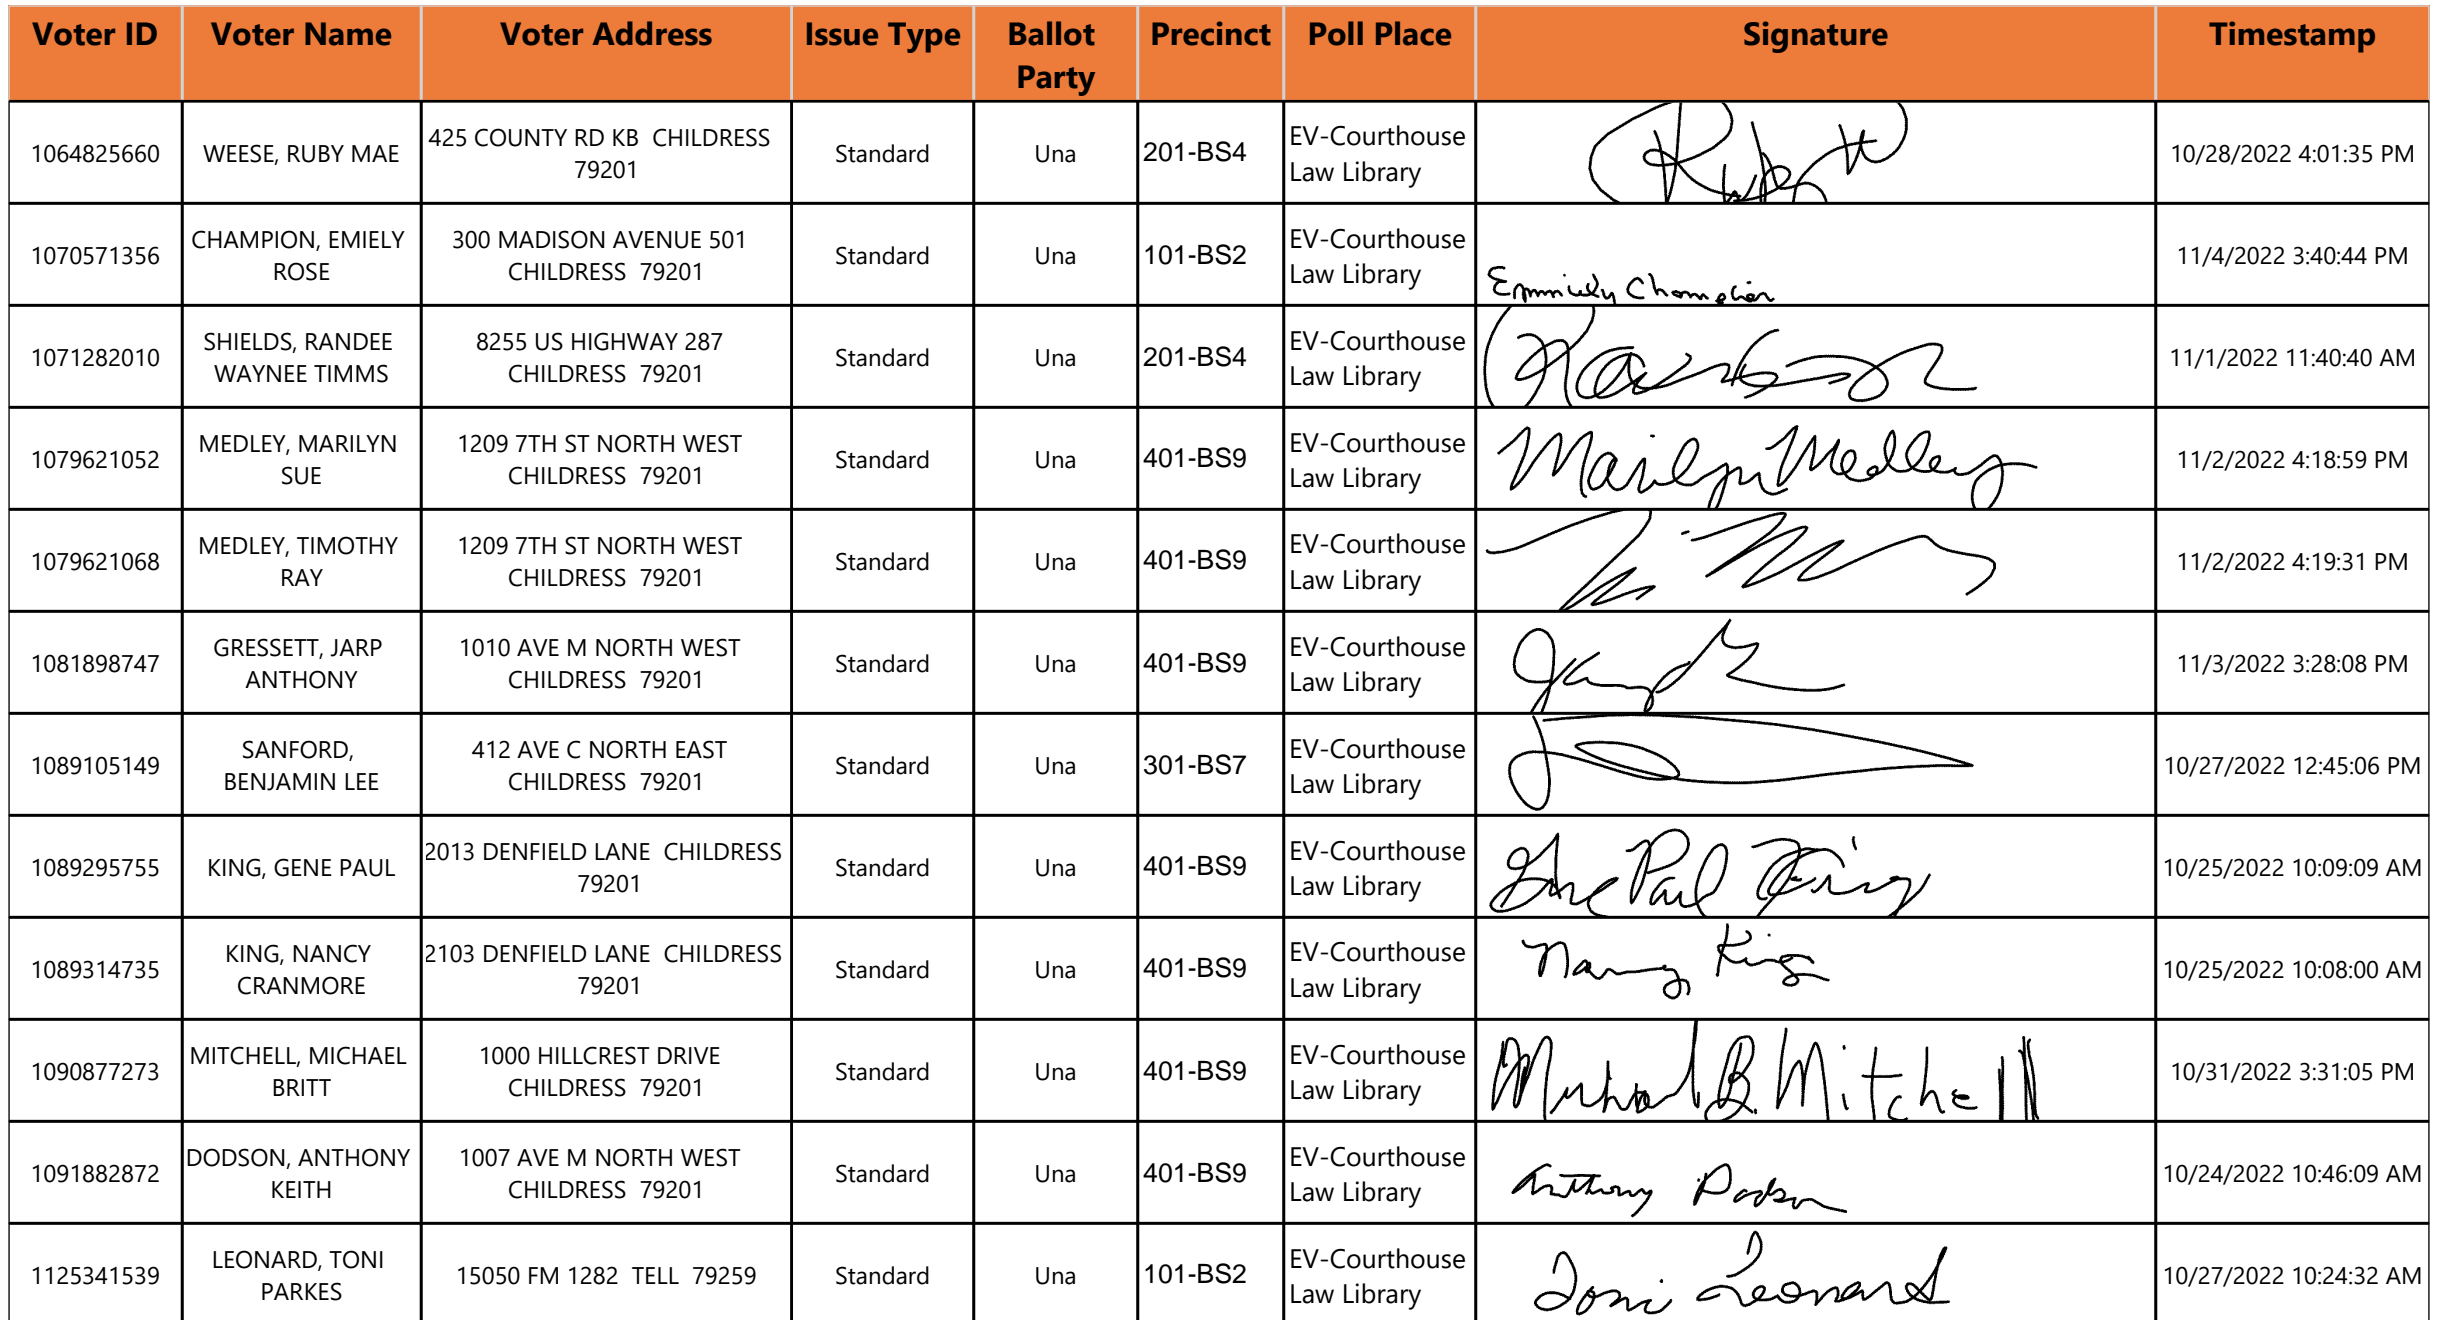 Voter ID Voter Name Voter Address Issue Type Ballot Party Precinct Poll Place Signature Timestamp
1064825660 WEESE, RUBY MAE 425 COUNTY RD KB CHILDRESS 79201 Standard Una 201-BS4 EV-Courthouse Law Library 10/28/2022 4:01:35 PM
1070571356 CHAMPION, EMIELY ROSE 300 MADISON AVENUE 501 CHILDRESS 79201 Standard Una 101-BS2 EV-Courthouse Law Library 11/4/2022 3:40:44 PM
1071282010 SHIELDS, RANDEE WAYNEE TIMMS 8255 US HIGHWAY 287 CHILDRESS 79201 Standard Una 201-BS4 EV-Courthouse Law Library 11/1/2022 11:40:40 AM
1079621052 MEDLEY, MARILYN SUE 1209 7TH ST NORTH WEST CHILDRESS 79201 Standard Una 401-BS9 EV-Courthouse Law Library Marilyn Medley 11/2/2022 4:18:59 PM
1079621068 MEDLEY, TIMOTHY RAY 1209 7TH ST NORTH WEST CHILDRESS 79201 Standard Una 401-BS9 EV-Courthouse Law Library 11/2/2022 4:19:31 PM
1081898747 GRESSETT, JARP ANTHONY 1010 AVE M NORTH WEST CHILDRESS 79201 Standard Una 401-BS9 EV-Courthouse Law Library 11/3/2022 3:28:08 PM
1089105149 SANFORD, BENJAMIN LEE 412 AVE C NORTH EAST CHILDRESS 79201 Standard Una 301-BS7 EV-Courthouse Law Library 10/27/2022 12:45:06 PM
1089295755 KING, GENE PAUL 2013 DENFIELD LANE CHILDRESS 79201 Standard Una 401-BS9 EV-Courthouse Law Library Gene Paul King 10/25/2022 10:09:09 AM
1089314735 KING, NANCY CRANMORE 2103 DENFIELD LANE CHILDRESS 79201 Standard Una 401-BS9 EV-Courthouse Law Library Nancy King 10/25/2022 10:08:00 AM
1090877273 MITCHELL, MICHAEL BRITT 1000 HILLCREST DRIVE CHILDRESS 79201 Standard Una 401-BS9 EV-Courthouse Law Library Michael B. Mitchell 10/31/2022 3:31:05 PM
1091882872 DODSON, ANTHONY KEITH 1007 AVE M NORTH WEST CHILDRESS 79201 Standard Una 401-BS9 EV-Courthouse Law Library Anthony Dodson 10/24/2022 10:46:09 AM
1125341539 LEONARD, TONI PARKES 15050 FM 1282 TELL 79259 Standard Una 101-BS2 EV-Courthouse Law Library Toni Leonard 10/27/2022 10:24:32 AM